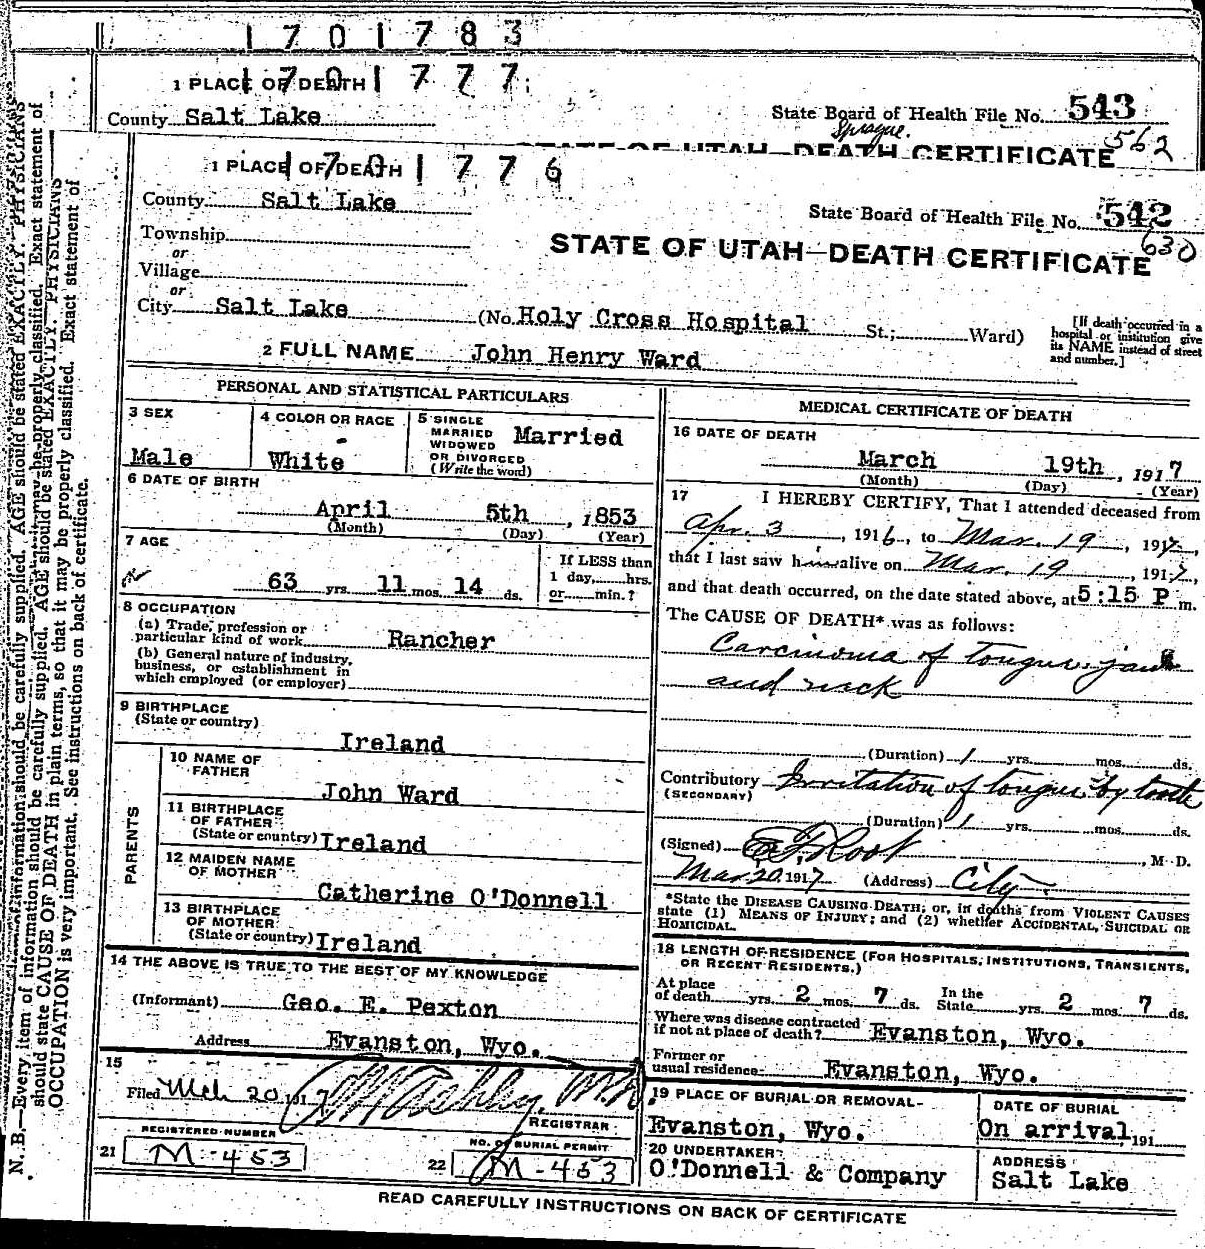 1701783
1 PLACE OF DEATH 1701777
County Salt Lake
State Board of Health File No. 543
Sprague. 562
STATE OF UTAH—DEATH CERTIFICATE
1 PLACE OF DEATH 1701776
County Salt Lake
State Board of Health File No. 542
630
Township
or
STATE OF UTAH—DEATH CERTIFICATE
Village
or
City Salt Lake (No. Holy Cross Hospital St.; Ward)
[If death occurred in a
hospital or institution give
its NAME instead of street
and number.]
2 FULL NAME John Henry Ward
PERSONAL AND STATISTICAL PARTICULARS
3 SEX
Male
4 COLOR OR RACE
White
5 SINGLE
MARRIED
WIDOWED
OR DIVORCED
(Write the word)
Married
6 DATE OF BIRTH
April 5th, 1853
(Month) (Day) (Year)
7 AGE
63 yrs. 11 mos. 14 ds.
If LESS than
1 day, hrs.
or min.?
8 OCCUPATION
(a) Trade, profession or
particular kind of work Rancher
(b) General nature of industry,
business, or establishment in
which employed (or employer)
9 BIRTHPLACE
(State or country)
Ireland
PARENTS
10 NAME OF
FATHER
John Ward
11 BIRTHPLACE
OF FATHER
(State or country) Ireland
12 MAIDEN NAME
OF MOTHER
Catherine O'Donnell
13 BIRTHPLACE
OF MOTHER
(State or country) Ireland
14 THE ABOVE IS TRUE TO THE BEST OF MY KNOWLEDGE
(Informant) Geo. E. Pexton
Address Evanston, Wyo.
15
Filed Mch 20 1917
REGISTRAR
REGISTERED NUMBER
21 M-453
NO. OF BURIAL PERMIT
22 M-453
MEDICAL CERTIFICATE OF DEATH
16 DATE OF DEATH
March 19th, 1917
(Month) (Day) (Year)
17 I HEREBY CERTIFY, That I attended deceased from
Apr. 3, 1916, to Mar. 19, 1917,
that I last saw him alive on Mar. 19, 1917,
and that death occurred, on the date stated above, at 5:15 P m.
The CAUSE OF DEATH* was as follows:
Carcinoma of tongue jaw
and neck
(Duration) 1 yrs. mos. ds.
Contributory Irritation of tongue by tooth
(SECONDARY)
(Duration) 1 yrs. mos. ds.
(Signed) Root, M. D.
Mar 20, 1917 (Address) City.
*State the DISEASE CAUSING DEATH; or, in deaths from VIOLENT CAUSES
state (1) MEANS OF INJURY; and (2) whether ACCIDENTAL, SUICIDAL OR
HOMICIDAL.
18 LENGTH OF RESIDENCE (FOR HOSPITALS, INSTITUTIONS, TRANSIENTS,
OR RECENT RESIDENTS.)
At place
of death yrs. 2 mos. 7 ds.
In the
State yrs. 2 mos. 7 ds.
Where was disease contracted
if not at place of death? Evanston, Wyo.
Former or
usual residence Evanston, Wyo.
19 PLACE OF BURIAL OR REMOVAL
Evanston, Wyo.
DATE OF BURIAL
On arrival 191
20 UNDERTAKER
O'Donnell & Company
ADDRESS
Salt Lake
READ CAREFULLY INSTRUCTIONS ON BACK OF CERTIFICATE
N. B.—Every item of information should be carefully supplied. AGE should be stated EXACTLY. PHYSICIANS
should state CAUSE OF DEATH in plain terms, so that it may be properly classified. Exact statement of
OCCUPATION is very important. See instructions on back of certificate.